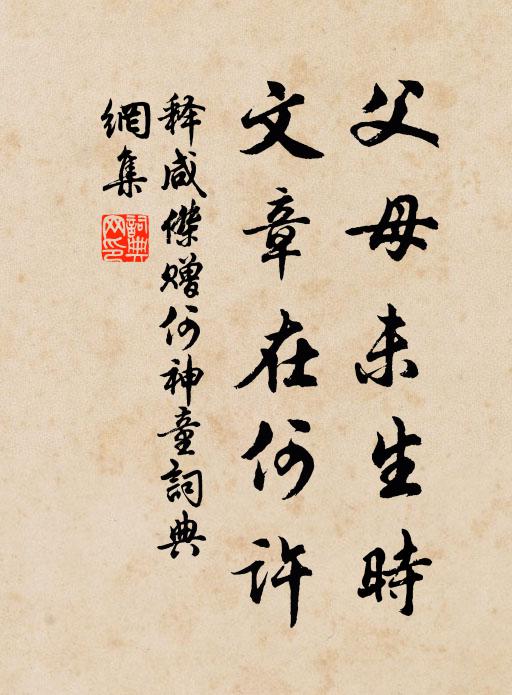 父母未生時
文章在何許
释咸傑赠何神童詞典
網集
詞典
网印